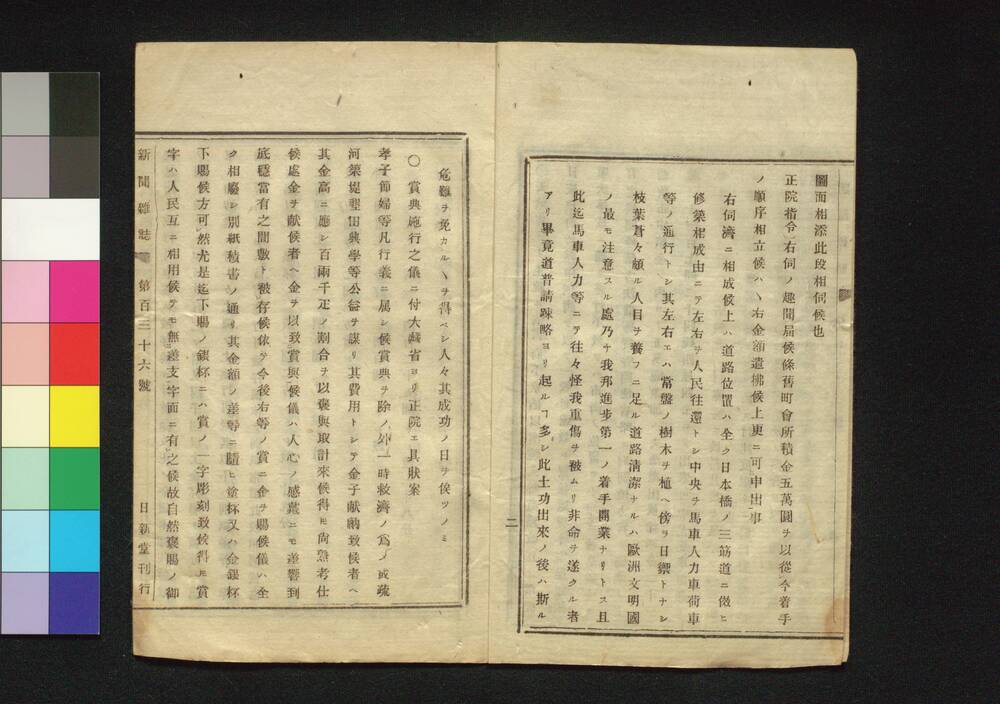 圖面相添此段相伺候也
正院指令右伺ノ趣聞届候條舊町會所積金五萬圓ヲ以從今着手
ノ順序相立候ハヽ右金額遣拂候上更ニ可申出事
右伺濟ニ相成候上ハ道路位置ハ全ク日本橋ノ三筋道ニ傚ヒ
修築相成由ニテ左右ヲ人民往還トシ中央ヲ馬車人力車荷車
等ノ通行トシ其左右エハ常盤ノ樹木ヲ植ヘ傍ヲ日禦トナシ
枝葉蒼々頗ル人目ヲ養フニ足ル道路清潔ナルハ歐洲文明國
ノ最モ注意スル處乃チ我邦進步第一ノ着手開業ナリトス且
此迄馬車人力等ニテ往々怪我重傷ヲ被ムリ非命ヲ遂クル者
アリ畢竟道普請疎略ヨリ起ルヿ多シ此土功出來ノ後ハ斯ル
二
危難ヲ免カルヽヲ得ベシ人々其成功ノ日ヲ俟ツノミ
○賞典施行之儀ニ付大藏省ヨリ正院エ其狀案
孝子節婦等凡行義ニ属シ候賞典ヲ除ノ外一時救濟ノ爲メ或疏
河築堤墾田興學等公益ヲ謀リ其費用トシテ金子献納致候者ヘ
其金高ニ應シ百兩千疋ノ割合ヲ以褒與取計來候得𪜈尚熟考仕
候處金ヲ献候者ヘ金ヲ以致賞與候儀ハ人心ノ感戴ニモ差響到
底穩當有之間敷ト被存候依テ今後右等ノ賞ニ金ヲ賜候儀ハ全
ク相廢シ別紙積書ノ通リ其金額ノ差等ニ隨ヒ塗杯又ハ金銀杯
下賜候方可然尤是迄下賜ノ銀杯ニハ賞ノ一字彫刻致候得𪜈賞
字ハ人民互ニ相用候テモ無差支字面ニ有之候故自然褒賜ノ御
新聞雜誌 第百三十六號 日新堂刊行